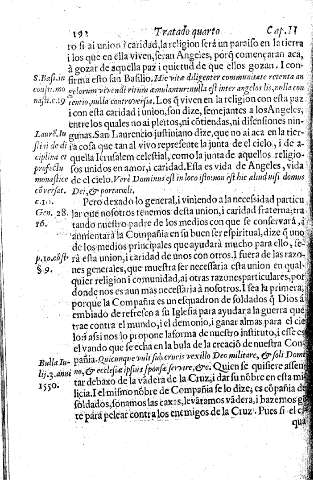 192 Tratado quarto Cap. II
ro si ai union i caridad, la religion será un paraiso en la tierra
i los que en ella viven, serán Angeles, porq̃ començaran aca,
à gozar de aquella paz i quietud de que ellos gozan. I con
S. Basi. in
firma esto san Basilio. Hæ vitæ diligenter communitate retenta an
gelorum vivendi ritum æmulantur: nulla est inter angelos lis, nulla con
tentio, nulla controversia. Los q̃ viven en la religion con esta paz
i con esta caridad i union, son dize, semejantes a los Angeles,
entre los quales no ai pleitos, ni cõtiendas, ni disensiones nin-
gunas. San Laurencio justiniano dize, que no ai aca en la tier-
ra cosa que tan al vivo represente la junta del cielo, i de a-
quella Ierusalem celestial, como la junta de aquellos religio-
sos unidos en amor, i caridad. Esta es vida de Angeles, vida
de el cielo. Verè Dominus est in loco isto: non est hic aliud nisi domus
Dei, & porta cæli.
Gen. 28.
16.
Pero dexado lo general, i viniendo a la necesidad particu
lar que nosotros tenemos desta union, i caridad fraterna; tra
tando nuestro padre de los medios con que se conservará,
i aumentará la Compañia en su buen ser espiritual, dize q̃ uno
de los medios principales que ayudará mucho para ello, se-
§ 9.
rá esta union, i caridad de unos con otros. I fuera de las razo-
nes generales, que muestra ser necessaria esta union en qual-
quier religion i comunidad, ai otras razones particulares, por
donde nos es aun mas necessaria à nosotros. I sea la primera;
porque la Compañia es un esquadron de soldados q̃ Dios á
embiado de refresco a su Iglesia para ayudar a la guerra que
trae contra el mundo, i el demonio, i ganar almas para el cie
lo: i assi nos lo propone la forma de nuestro instituto, i esse es
el vando que se echa en la bula de la creació de nuestra Com-
Bulla Iu-
lij. 3. anni
1550.
pañia. Quicunque vult sub crucis vexillo Deo militare, & soli Domi
no, & ecclesiæ ipsius sponsæ servire, &c. Quien se quisiere assen
tar debaxo de la vãdera de la Cruz, i dar su nõbre en esta mi-
licia. I el mismo nõbre de Compañia se lo dize; es cõpañia de
soldados, sonamos las caxas, levãtamos vãdera, i hazemos gẽ
te para pelear contra los enemigos de la Cruz. Pues si el es
qua